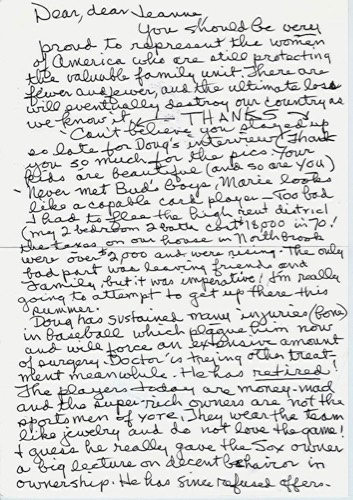 Dear, dear Jeanne,
You should be very
proud to represent the women
of America who are still protecting
the valuable family unit. There are
fewer and fewer, and the ultimate loss
will eventually destroy our country as
we know it. THANKS
Can't believe you stayed up
so late for Doug's interview! Thank
you so much for the pics. Your
kids are beautiful (and so are you)
Never met Bud's boys, Marie looks
like a capable card player - Too bad
I had to flee the high rent district
(my 2 bedroom 2 bath cost $18,000 in '70!
the taxes on our house in Northbrook
were over $2,000 and were rising. The only
bad part was leaving friends and
family but it was imperative! I'm really
going to attempt to get up there this
summer.
Doug has sustained many injuries (bone)
in baseball which plague him now
and will force an extensive amount
of surgery. Doctor's trying other treat-
ment meanwhile. He has retired!
The players today are money-mad
and the super-rich owners are not the
sportsmen of yore. They wear the team
like jewelry and do not love the game!
I guess he really gave the Sox owner
a big lecture on decent behavior in
ownership. He has since refused offers.